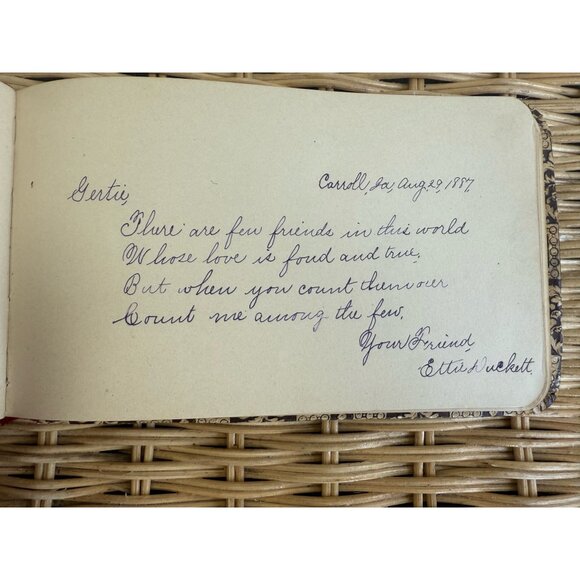 Carroll, Ia, Aug. 29, 1887.
Gertie,
There are few friends in this world
Whose love is fond and true,
But when you count them over
Count me among the few.
Your Friend,
Ettie Duckett.